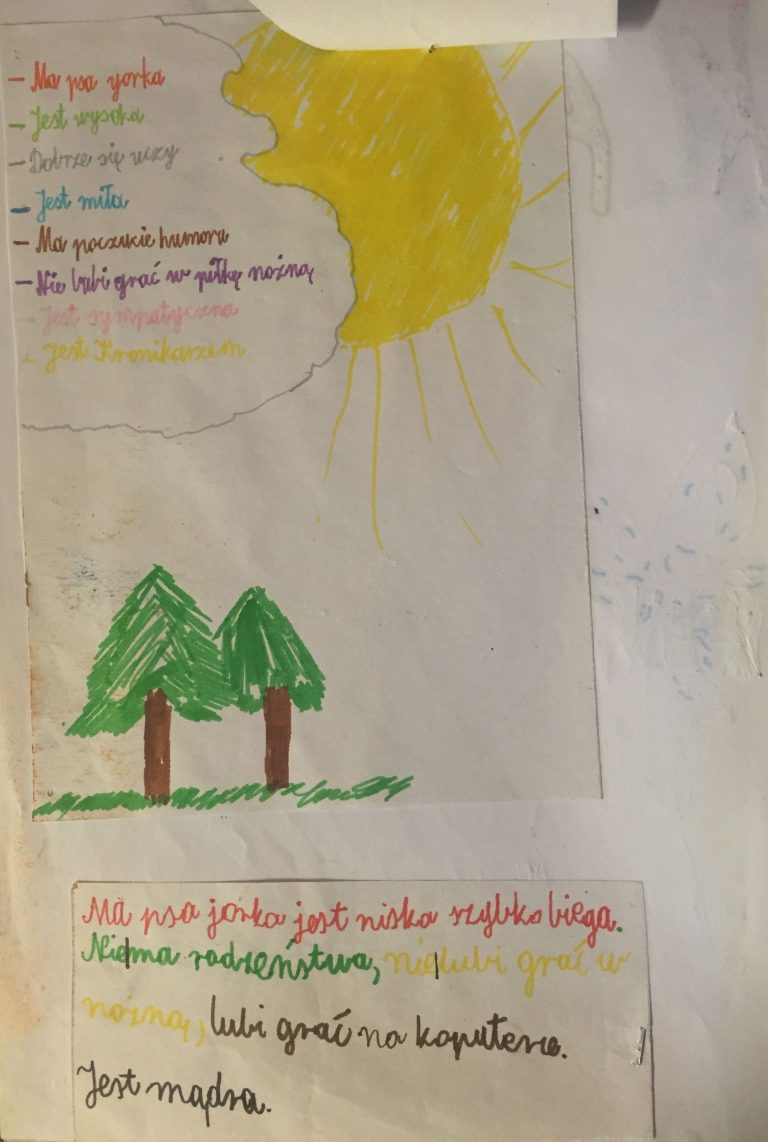 – Ma psa yorka
– Jest wysoka
– Dobrze się uczy
– Jest miła
– Ma poczucie humoru
– Nie lubi grać w piłkę nożną
– Jest sympatyczna
– Jest Kronikarzem
Ma psa jorka jest niska szybko biega.
Nie|ma rodzeństwa, nie|lubi grać w
nożną, lubi grać na koputerze.
Jest mądra.